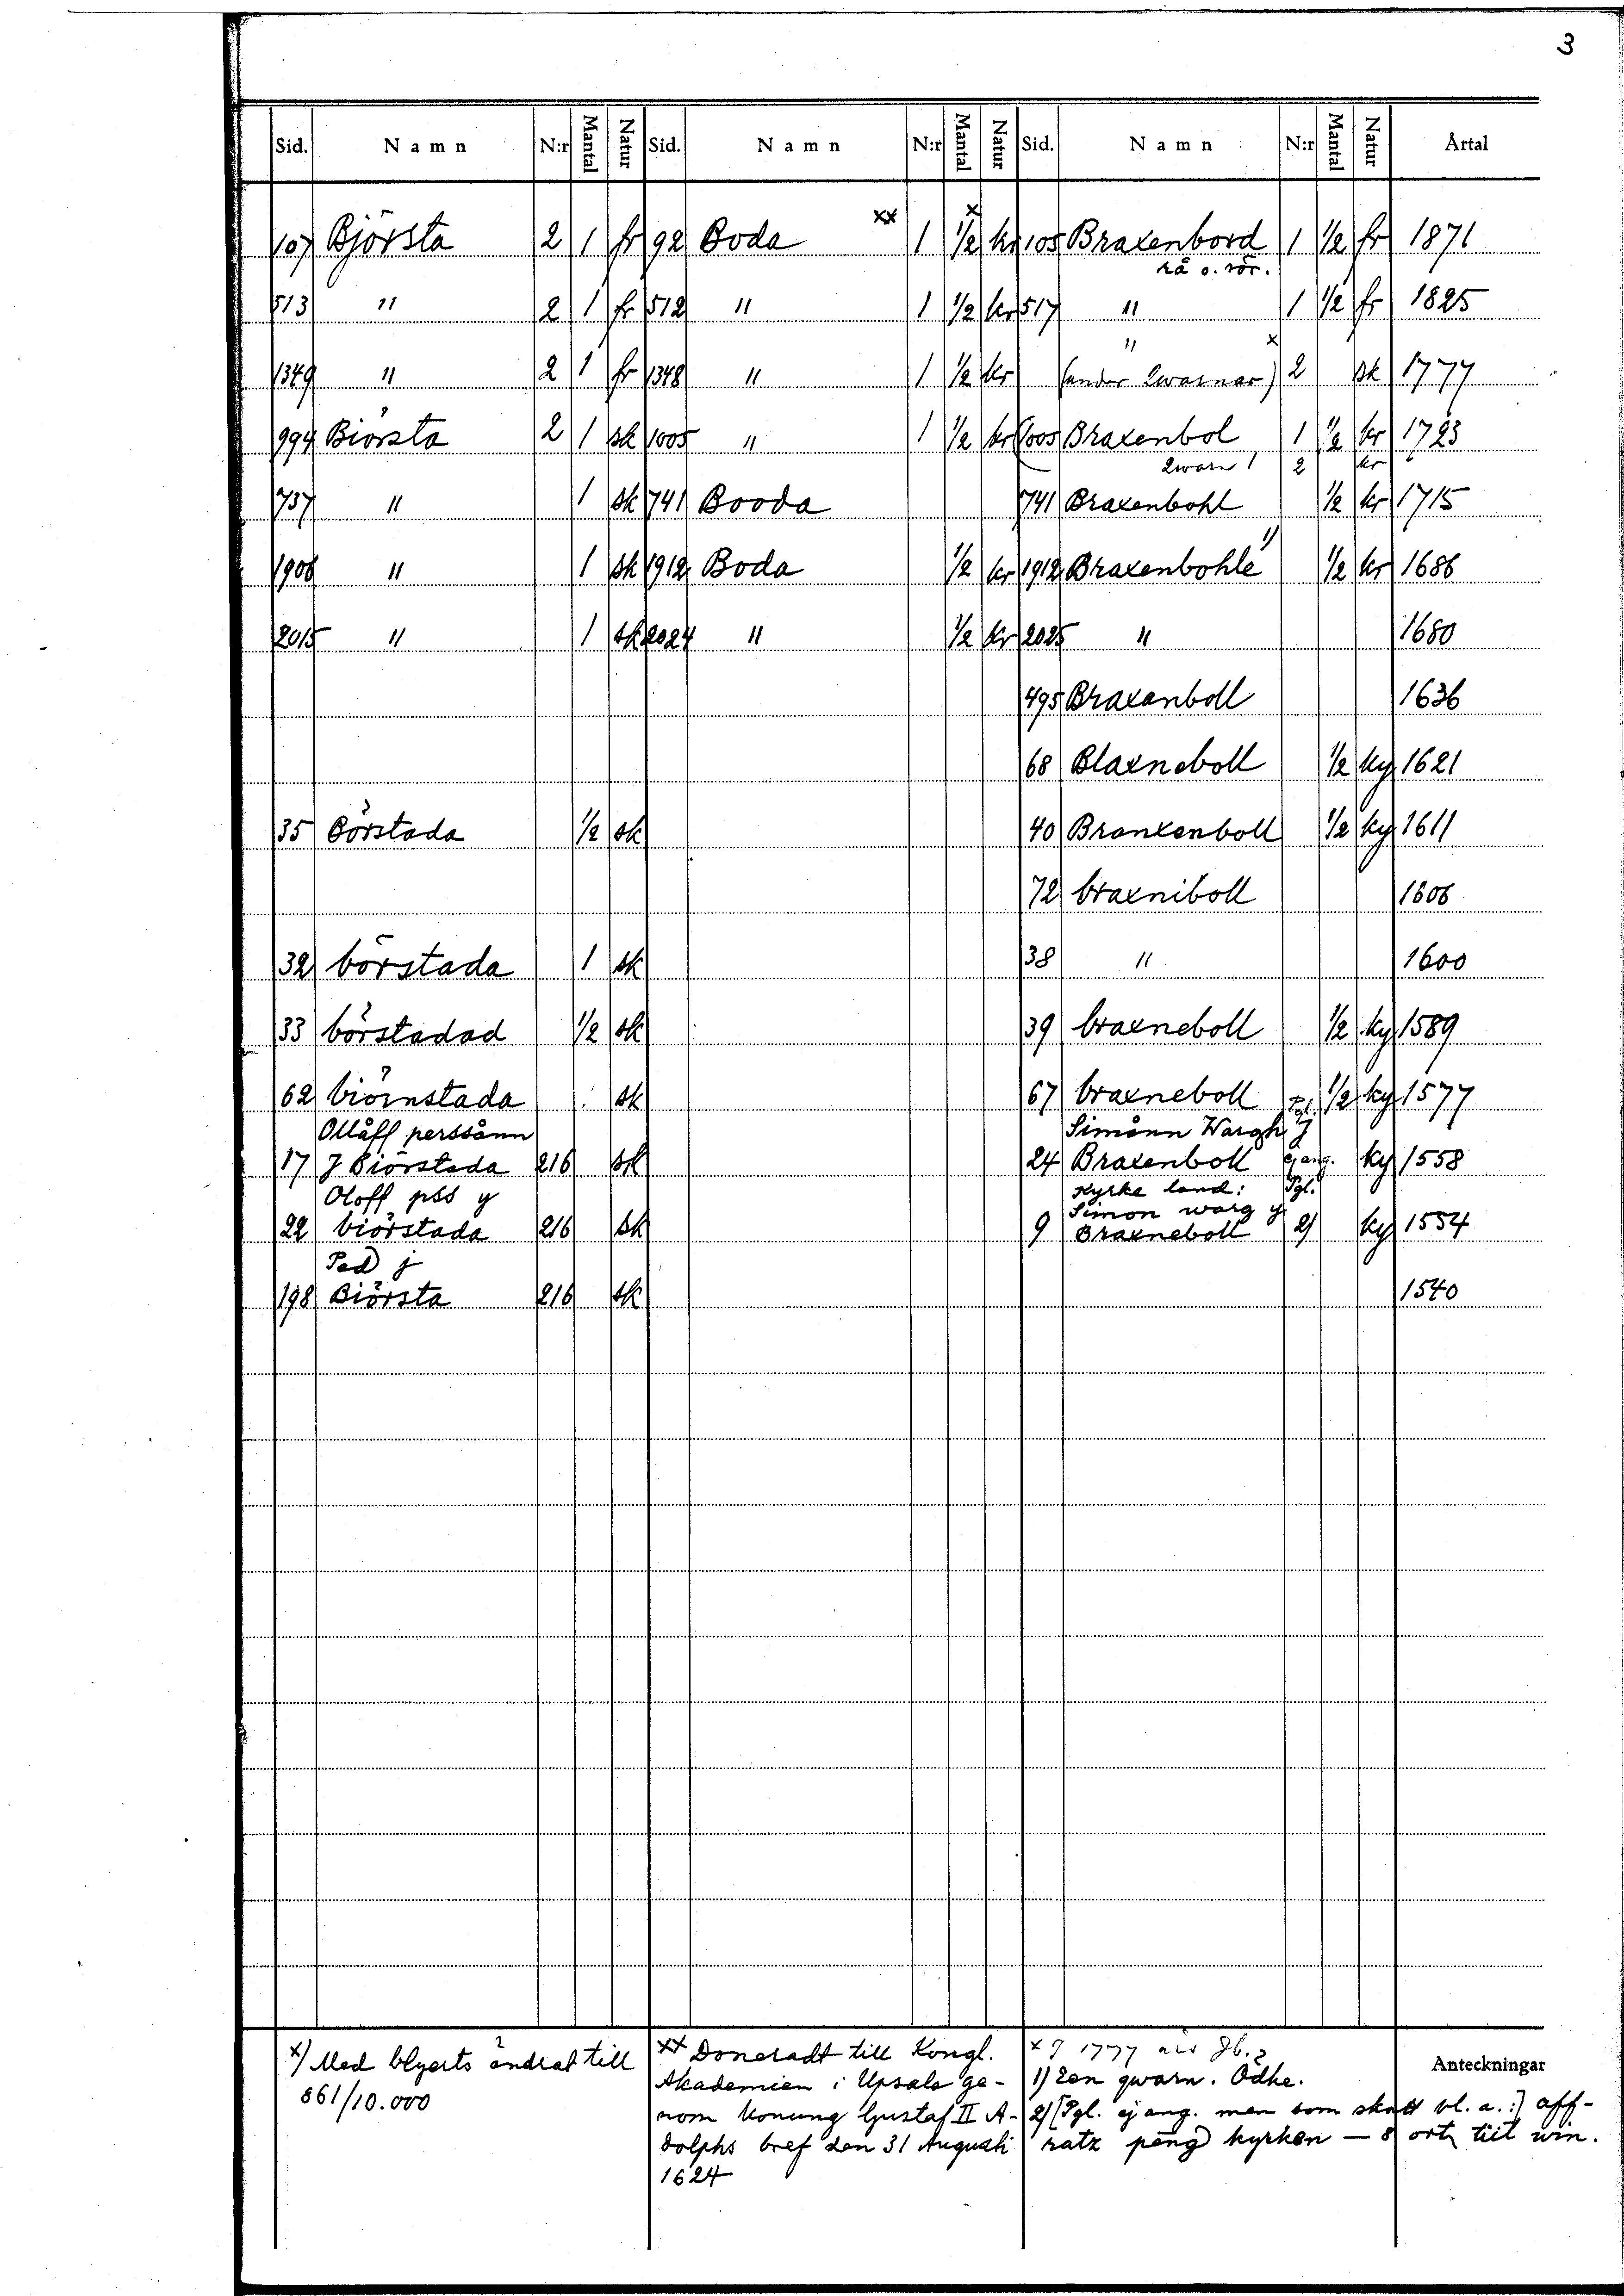 3
Sid. Namn N:r Mantal Natur Sid. Namn N:r Mantal Natur Sid. Namn N:r Mantal Natur Årtal
107 Björsta 2 1 fr 92 Boda xx 1 x 1/2 kr 105 Braxenbord 1 1/2 fr 1871
rå o. rör.
513 " 2 1 fr 512 " 1 1/2 kr 517 " 1 1/2 fr 1825
" x
1349 " 2 1 fr 1348 " 1 1/2 kr (ender Qwarnar) 2 sk 1777
994 Biörsta 2 1 sk 1005 " 1 1/2 kr 1005 Braxenbol 1 1/2 kr 1723
Qwarn 1 2 kr
737 " 1 sk 741 Booda 741 Braxenbohl 1/2 kr 1715
1906 " 1 sk 1912 Boda 1/2 kr 1912 Braxenbohle 1) 1/2 kr 1686
2015 " 1 sk 2024 " 1/2 kr 2025 " 1680
495 Braxanboll 1636
68 Blaxneboll 1/2 ky 1621
35 Börstada 1/2 sk 40 Branxenboll 1/2 ky 1611
72 braxniboll 1606
32 börstada 1 sk 38 " 1600
33 börstadad 1/2 sk 39 braxneboll 1/2 ky 1589
62 biörnstada sk 67 braxneboll Pgl. 1/2 ky 1577
Ollåff perssånn Simånn Wargh J
17 J Biörstada 216 sk 24 Braxenboll ej ang. ky 1558
Oloff pss y Kyrke land: Pgl.
Simon warg y
22 biörstada 216 sk 9 Braxneboll 2) ky 1554
Ped j
198 Biörsta 216 sk 1540
x) Med blyerts ändrat till
861/10.000
xx Doneradt till Kongl.
Akademien i Upsala ge-
nom Konung Gustaf II A-
dolphs bref den 31 Augusti
1624
x I 1777 års Jb.
1) Een qwarn. Ödhe.
2) [Pgl. ej ang. men som skatt bl. a.:] aff-
ratz peng kyrken — 8 ort tiit win.
Anteckningar